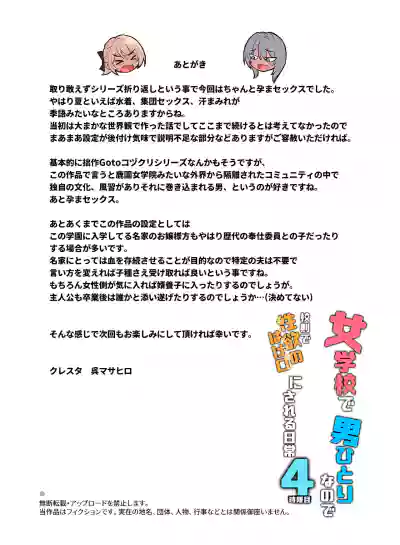 あとがき
取り敢えずシリーズ折り返しという事で今回はちゃんと孕まセックスでした。
やはり夏といえば水着、集団セックス、汗まみれが
季語みたいなところありますからね。
当初は大まかな世界観で作った話でしてここまで続けるとは考えてなかったので
まあまあ設定が後付け気味で説明不足な部分などありますがご容赦いただければ。
基本的に拙作Gotoコヅクリシリーズなんかもそうですが、
この作品で言うと鹿園女学院みたいな外界から隔離されたコミュニティの中で
独自の文化、風習がありそれに巻き込まれる男、というのが好きですね。
あと孕ませセックス。
あとあくまでこの作品の設定としては
この学園に入学してる名家のお嬢様方もやはり歴代の奉仕委員との子だったり
する場合が多いです。
名家にとっては血を存続させることが目的なので特定の夫は不要で
言い方を変えれば子種さえ受け取れば良いという事ですね。
もちろん女性側が気に入れば婿養子に入ったりするのでしょうが。
主人公も卒業後は誰かと添い遂げたりするのでしょうか…(決めてない)
そんな感じで次回もお楽しみにして頂ければ幸いです。
クレスタ　呉マサヒロ
女学校で男ひとりなので
校則で性欲のはけ口にされる日常
4
無断転載・アップロードを禁止します。
当作品はフィクションです。実在の地名、団体、人物、行事などとは関係御座いません。